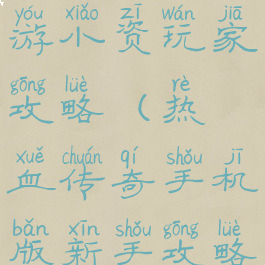 yóu xiǎo zī wán jiā
游小资玩家
gōng lüè rè
攻略（热
xuě chuán qí shǒu jī
血传奇手机
bǎn xīn shǒu gōng lüè
版新手攻略